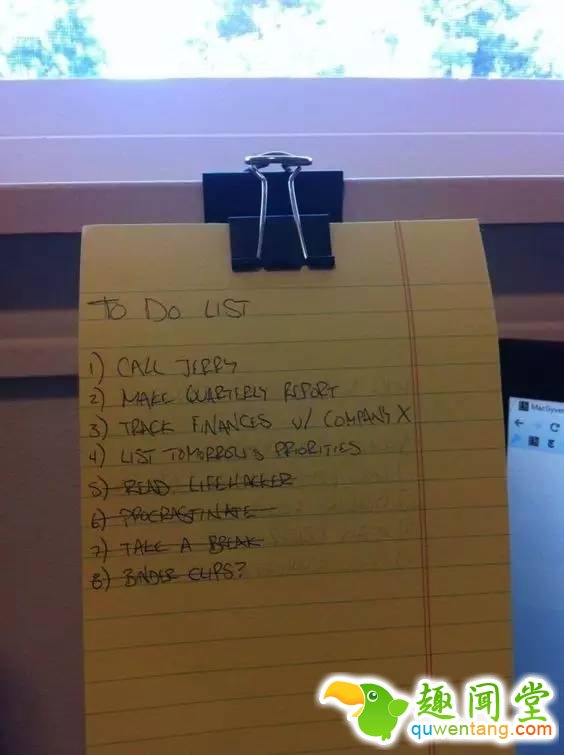 TO DO LIST
1) CALL JERRY
2) MAKE QUARTERLY REPORT
3) TRACK FINANCES W/ COMPANY X
4) LIST TOMORROW'S PRIORITIES
5) READ LIFEHACKER
6) PROCRASTINATE
7) TAKE A BREAK
8) BINDER CLIPS?
MacGyver
趣闻堂
quwentang.com